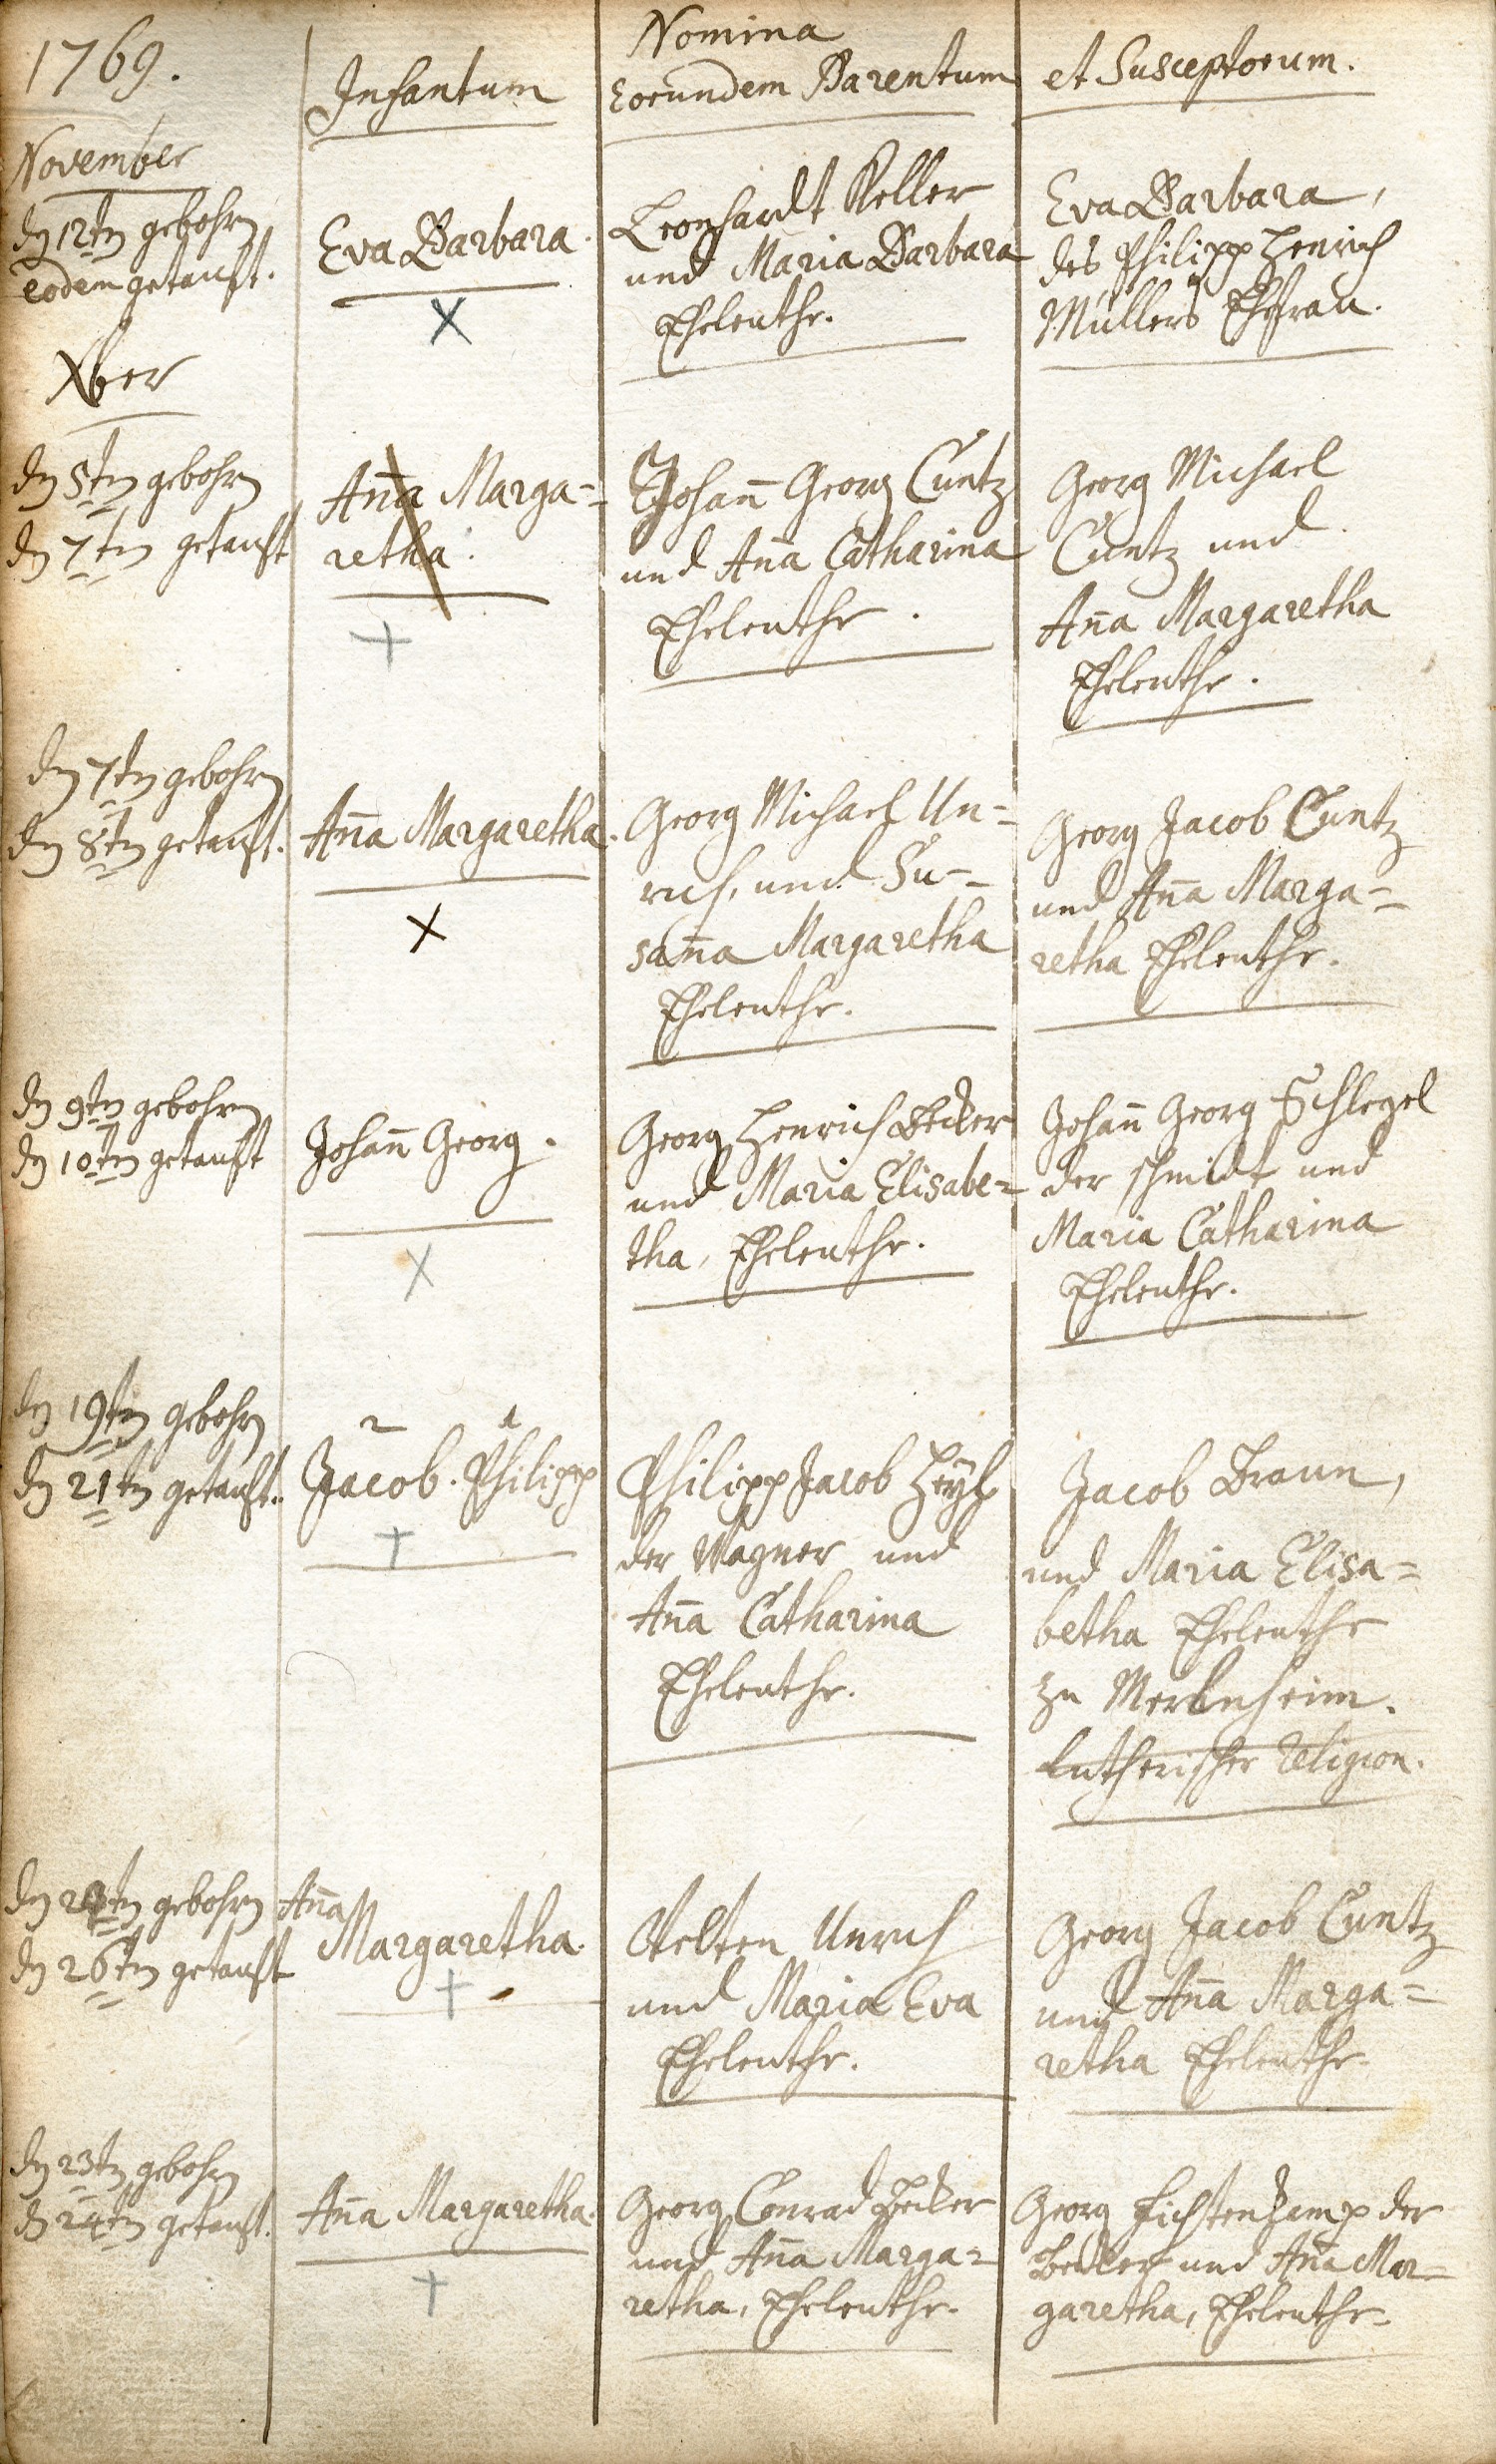 1769.
Infantum
Nomina
Eorundem Parentum
et Susceptorum.
November
den 12ten gebohren
eodem getauft.
Eva Barbara.
X
Leonhardt Keller
und Maria Barbara
Eheleuthe.
Eva Barbara,
des Philipp Henrich
Müllers Ehefrau.
Xber
den 5ten gebohren
den 7ten getauft
Aña Marga=
retha.
+
Johañ Georg Cuntz
und Aña Catharina
Eheleuthe.
Georg Michael
Cuntz und
Aña Margaretha
Eheleuthe.
den 7ten gebohren
den 8ten getauft.
Aña Margaretha.
X
Georg Michael Un=
rich, und Su=
saña Margaretha
Eheleuthe.
Georg Jacob Cuntz
und Aña Marga=
retha Eheleuthe.
den 9ten gebohren
den 10ten getauft
Johañ Georg.
X
Georg Henrich Becker
und Maria Elisabe=
tha, Eheleuthe.
Johañ Georg Schlegel
der schmidt und
Maria Catharina
Eheleuthe.
den 19ten gebohren
den 21ten getauft.
2 1
Jacob. Philipp
+
Philipp Jacob Heyl
der Wagner und
Aña Catharina
Eheleuthe.
Jacob Braun,
und Maria Elisa=
betha Eheleuthe
zu Merlnheim.
Lutherischer Religion.
den gebohren
den 26ten getauft
Aña
Margaretha.
+
Velten Unrich
und Maria Eva
Eheleuthe.
Georg Jacob Cuntz
und Aña Marga=
retha Eheleuthe.
den 23ten gebohren
den 24ten getauft.
Aña Margaretha.
+
Georg Conrad Becker
und Aña Marga=
retha, Eheleuthe.
Georg Fichtenkamp der
Becker und Aña Mar=
garetha, Eheleuthe.